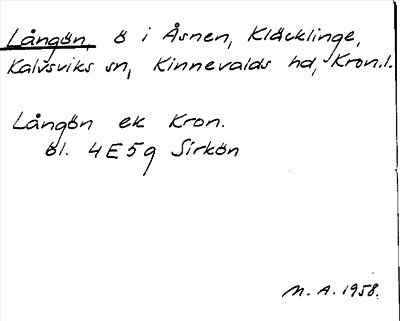 Långön, ö i Åsnen, Kläcklinge,
Kalvsviks sn, Kinnevalds hd, Kron.l.
Långön ek Kron.
bl. 4E5g Sirkön
M.A. 1958.